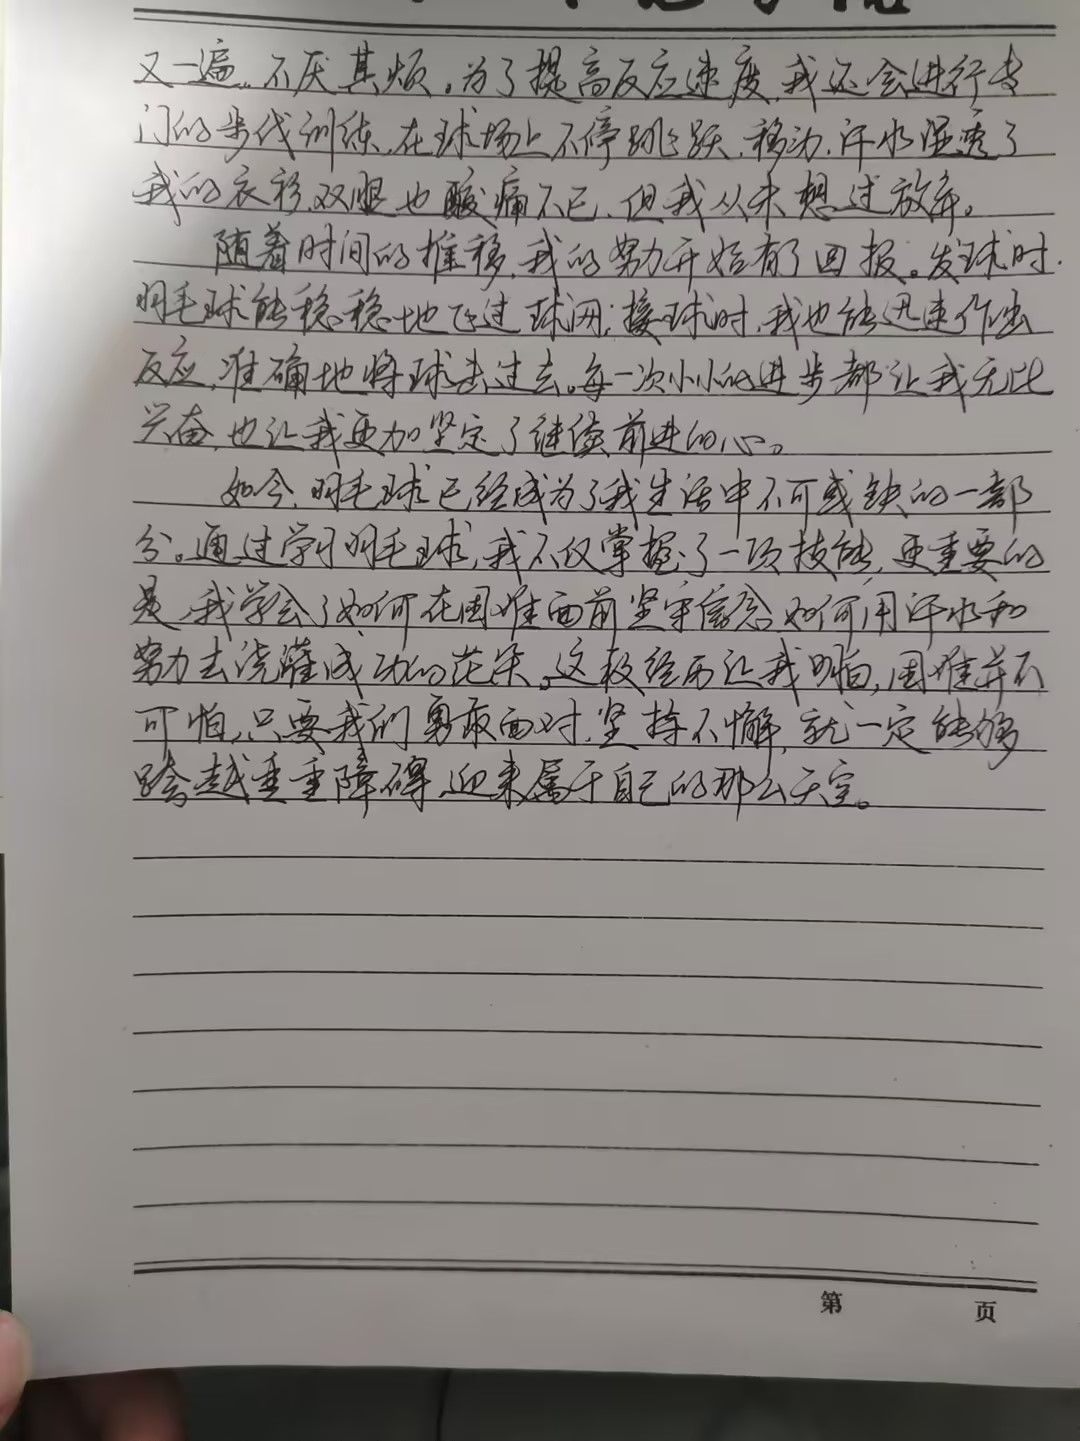 又一遍,不厌其烦。为了提高反应速度,我还会进行专
门的步伐训练,在球场上不停跳跃、移动,汗水湿透了
我的衣衫,双腿也酸痛不已,但我从未想过放弃。
随着时间的推移,我的努力开始有了回报。发球时,
羽毛球能稳稳地飞过球网;接球时,我也能迅速作出
反应,准确地将球击过去。每一次小小的进步都让我无比
兴奋,也让我更加坚定了继续前进的心。
如今,羽毛球已经成为了我生活中不可或缺的一部
分。通过学习羽毛球,我不仅掌握了一项技能,更重要的
是,我学会了如何在困难面前坚守信念,如何用汗水和
努力去浇灌成功的花朵。这段经历让我明白,困难并不
可怕,只要我们勇敢面对,坚持不懈,就一定能够
跨越重重障碍,迎来属于自己的那么天空。
第 页